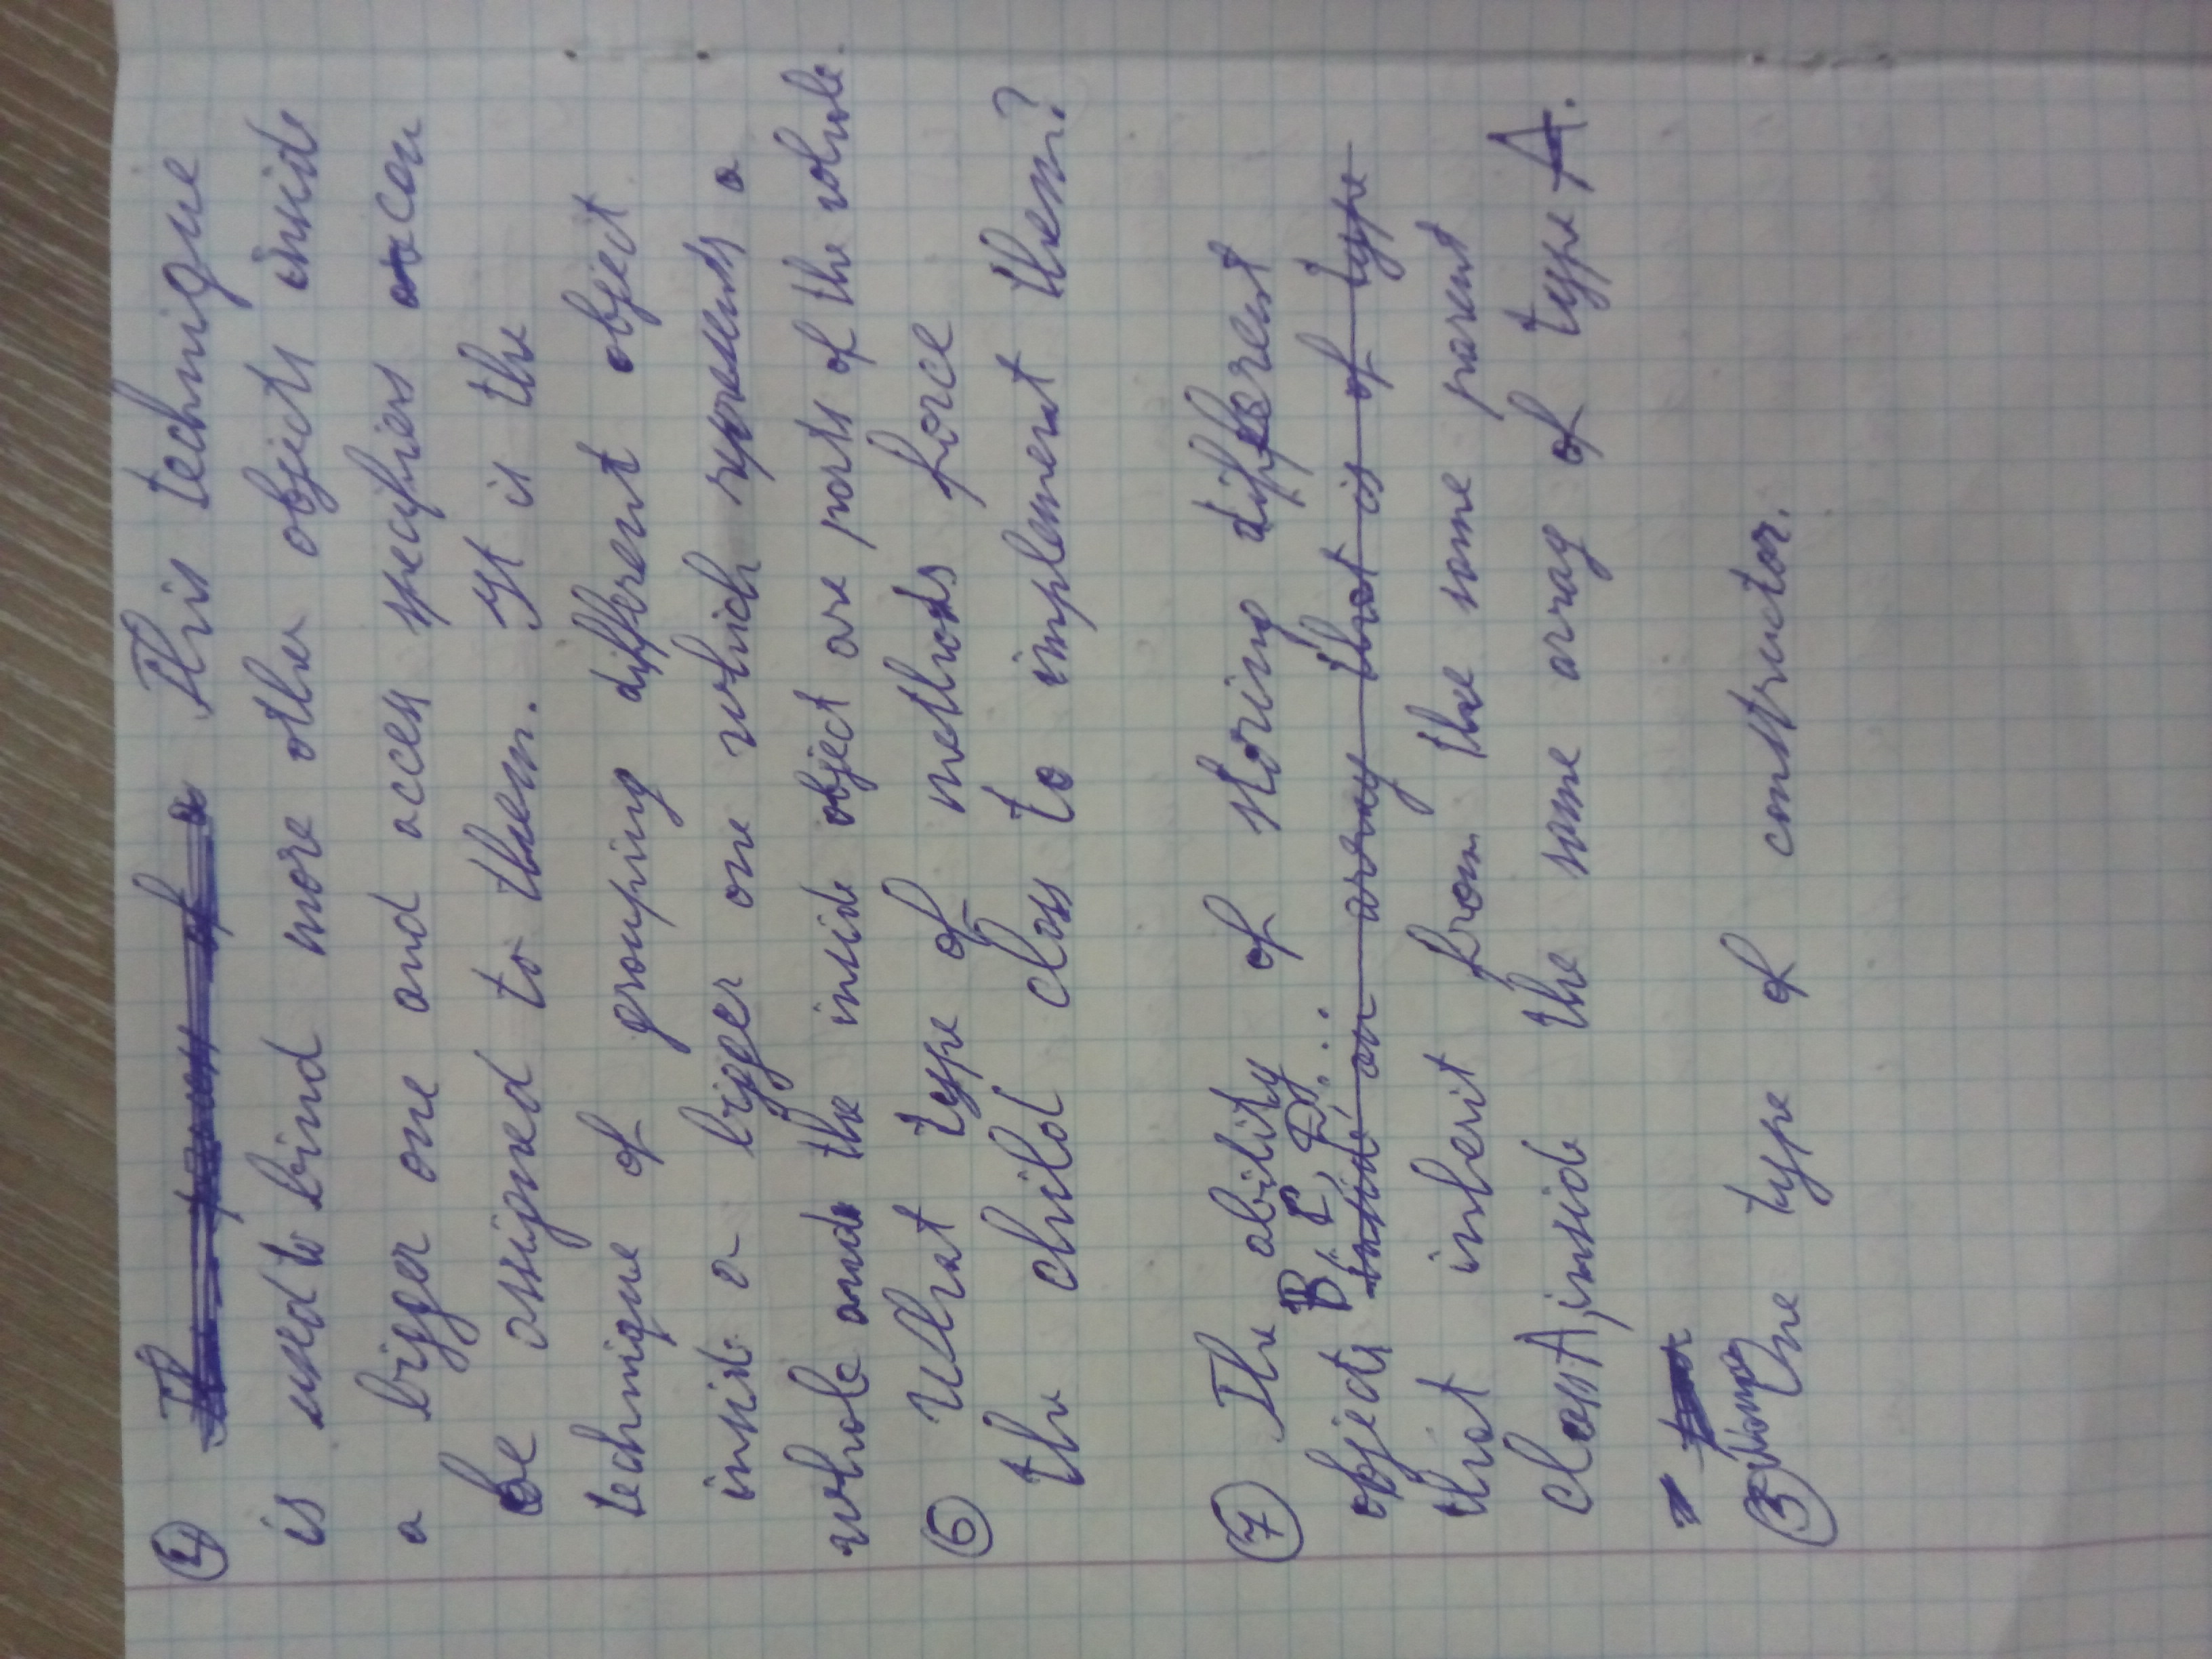 ④ This technique
is used to bind more other objects inside
a bigger one and access specifiers can
be assigned to them. It is the
technique of grouping different object
inside a bigger one which represents a
whole and the inside object are parts of the whole.
⑥ What type of methods force
the child class to implement them?
⑦ The ability of storing different
objects B, C, D, ...
inside an array that is of type
that inherit from the same parent
class A, inside the same array of type A.
③ Name the type of constructor.